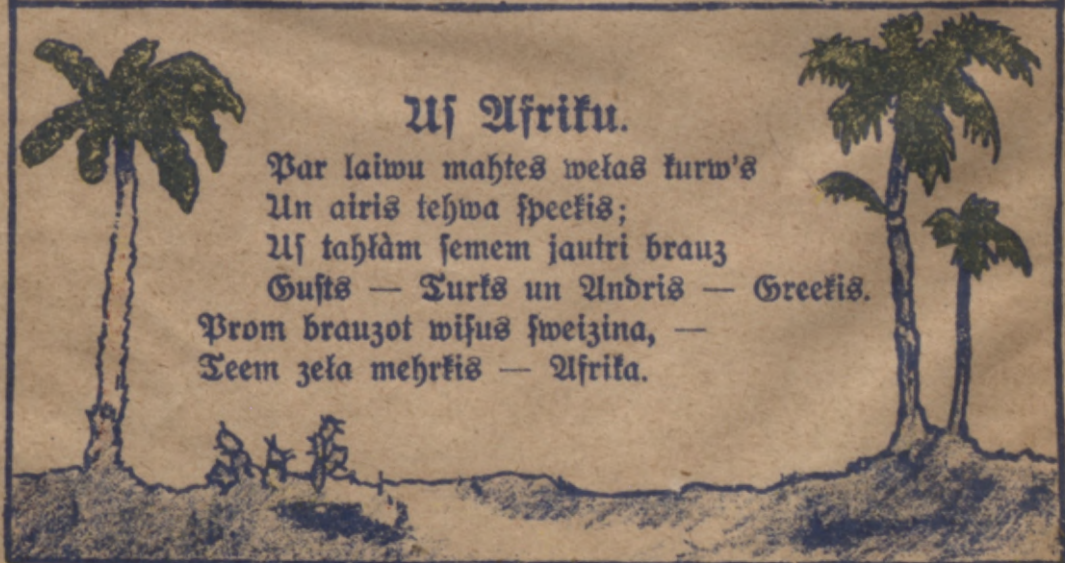 Uſ Afriku.
Par laiwu mahtes wełas kurw's
Un airis tehwa ſpeeķis;
Uſ tahłàm ſemem jautri brauz
Guſts — Turks un Andris — Greeķis.
Prom brauzot wiſus ſweizina, —
Teem zeła mehrķis — Afrika.